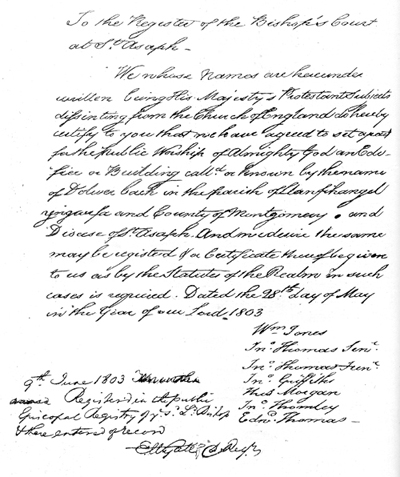 To the Register of the Bishop's Court
at St. Asaph -
We whose Names are hereunder
written being His Majesty's Protestant Subjects
dissenting from the Church of England do hereby
certify to you that we have agreed to set apart
for the Public Worship of Almighty God an Edi-
fice or Building call'd or known by the name
of Dolwar bach in the parish of Llanfihangel
yngwnfa and County of Montgomery and
Diocese of St. Asaph. And we desire the same
may be registerd & a Certificate thereof be given
to us as by the Statutes of the Realm in such
cases is required. Dated the 28th Day of May
in the Year of our Lord 1803
Wm Jones
Jno Thomas Senr
Jno Thomas Junr
Jno Griffiths
Thos Morgan
Jno Thomley
Edwd Thomas
9th June 1803
Registered in the public
Episcopal Registry of ye Ld Bishop
& there entered of record